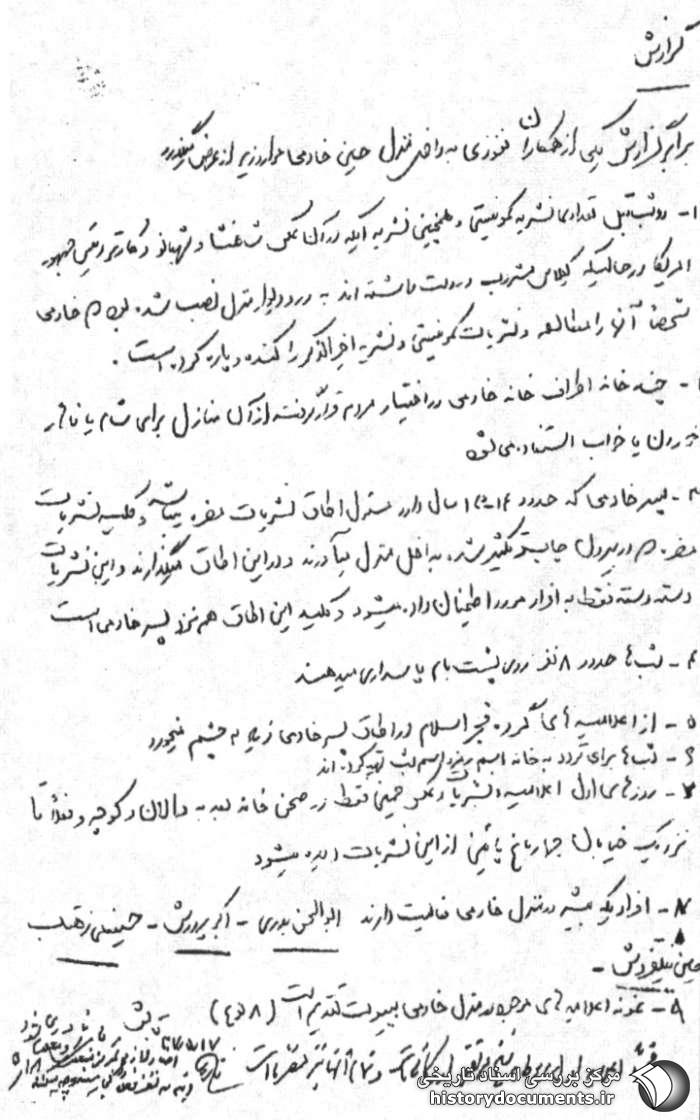 گزارش
برابر گزارش یکی از همکاران نفوذی به داخل منزل حسین خادمی موارد زیر از عرض میگذرد
۱- دو شب قبل تعدادی نشریه کمونیستی و همچنین نشریه ایکه در آن عکس شاهنشاه و شهبانو و کارتر رئیس جمهور
امریکا در حالیکه گیلاس مشروب در دست داشته اند به در و دیوار منزل نصب شده بود که خادمی
شخصاً آنها را مطالعه و نشریات کمونیستی و نشریه اخیرالذکر را کنده و پاره کرده است.
۲- چند خانه اطراف خانه خادمی در اختیار مردم قرار گرفته از آن منازل برای شام یا ناهار
خوردن یا خواب استفاده می شود
۳- پسر خادمی که حدود ۱۴-۱۵ سال دارد مسئول اطاق نشریات مضره میباشد و کلیه نشریات
مضره که در بیرون چاپ و تکثیر شده به داخل منزل میآورند و در این اطاق میگذارند و این نشریات
دسته دسته فقط به افراد مورد اطمینان داده میشود و کلید این اطاق هم نزد پسر خادمی است
۴- شبها حدود ۸ نفر روی پشت بام پاسداری میدهند
۵- از اعلامیه های گروه فجر اسلام در اطاق پسر خادمی زیاد به چشم میخورد
۶- شبها برای تردد به خانه اسم رمز و اسم شب تهیه کرده اند
۷- روزهای اول اعلامیه و نشریات و عکس خمینی فقط در صحن خانه بعد به دالان و کوچه و فعلاً تا
نزدیک خیابان چهارباغ پائین از این نشریات دیده میشود
۸- افرادیکه بیشتر در منزل خادمی فعالیت دارند ابوالحسن بدری - اکبر پرورش - حسینی
حسن نیلفروش -
۹- نمونه اعلامیه های موجود در منزل خادمی بپیوست تقدیم است (۸ نوع)
مرکز بررسی اسناد تاریخی
historydocuments.ir